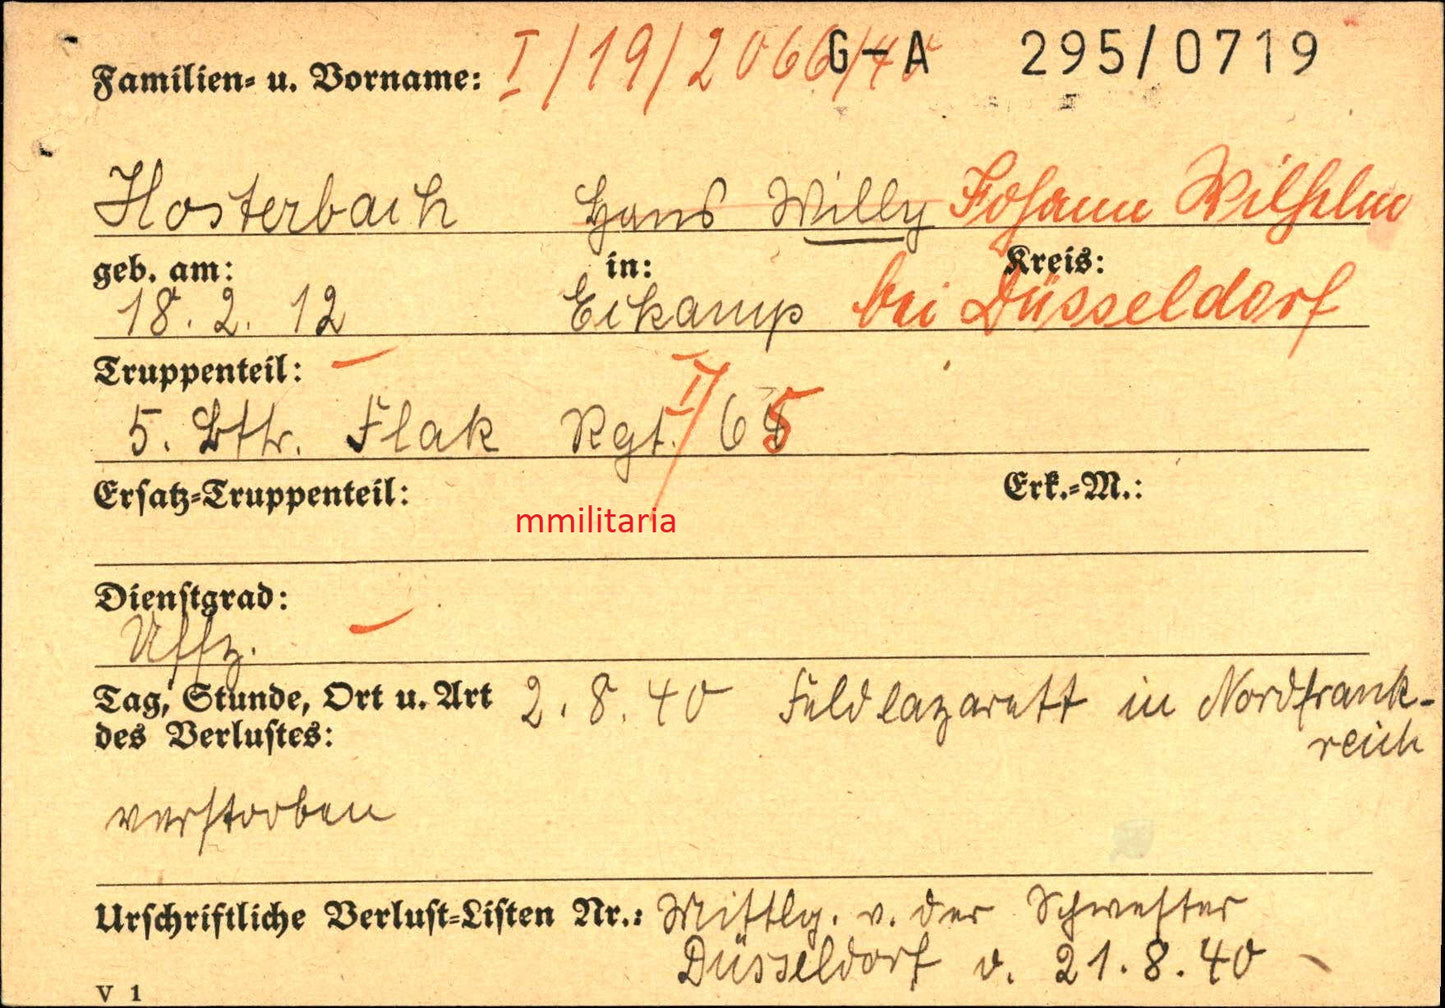 Familien- u. Vorname: I/19/2066/40 G-A 295/0719
Hosterbach Hans Willy Johann Wilhelm
geb. am: in: Kreis:
18. 2. 12 Eckamp bei Düsseldorf
Truppenteil:
5. Bttr. Flak Rgt. I/65
Ersatz-Truppenteil: Erk.-M.:
mmilitaria
Dienstgrad:
Uffz.
Tag, Stunde, Ort u. Art 2. 8. 40 Feldlazarett in Nordfrank-
des Verlustes: reich
verstorben
Urschriftliche Verlust-Listen Nr.: Mittlg. v. der Schwester
Düsseldorf v. 21. 8. 40
V 1